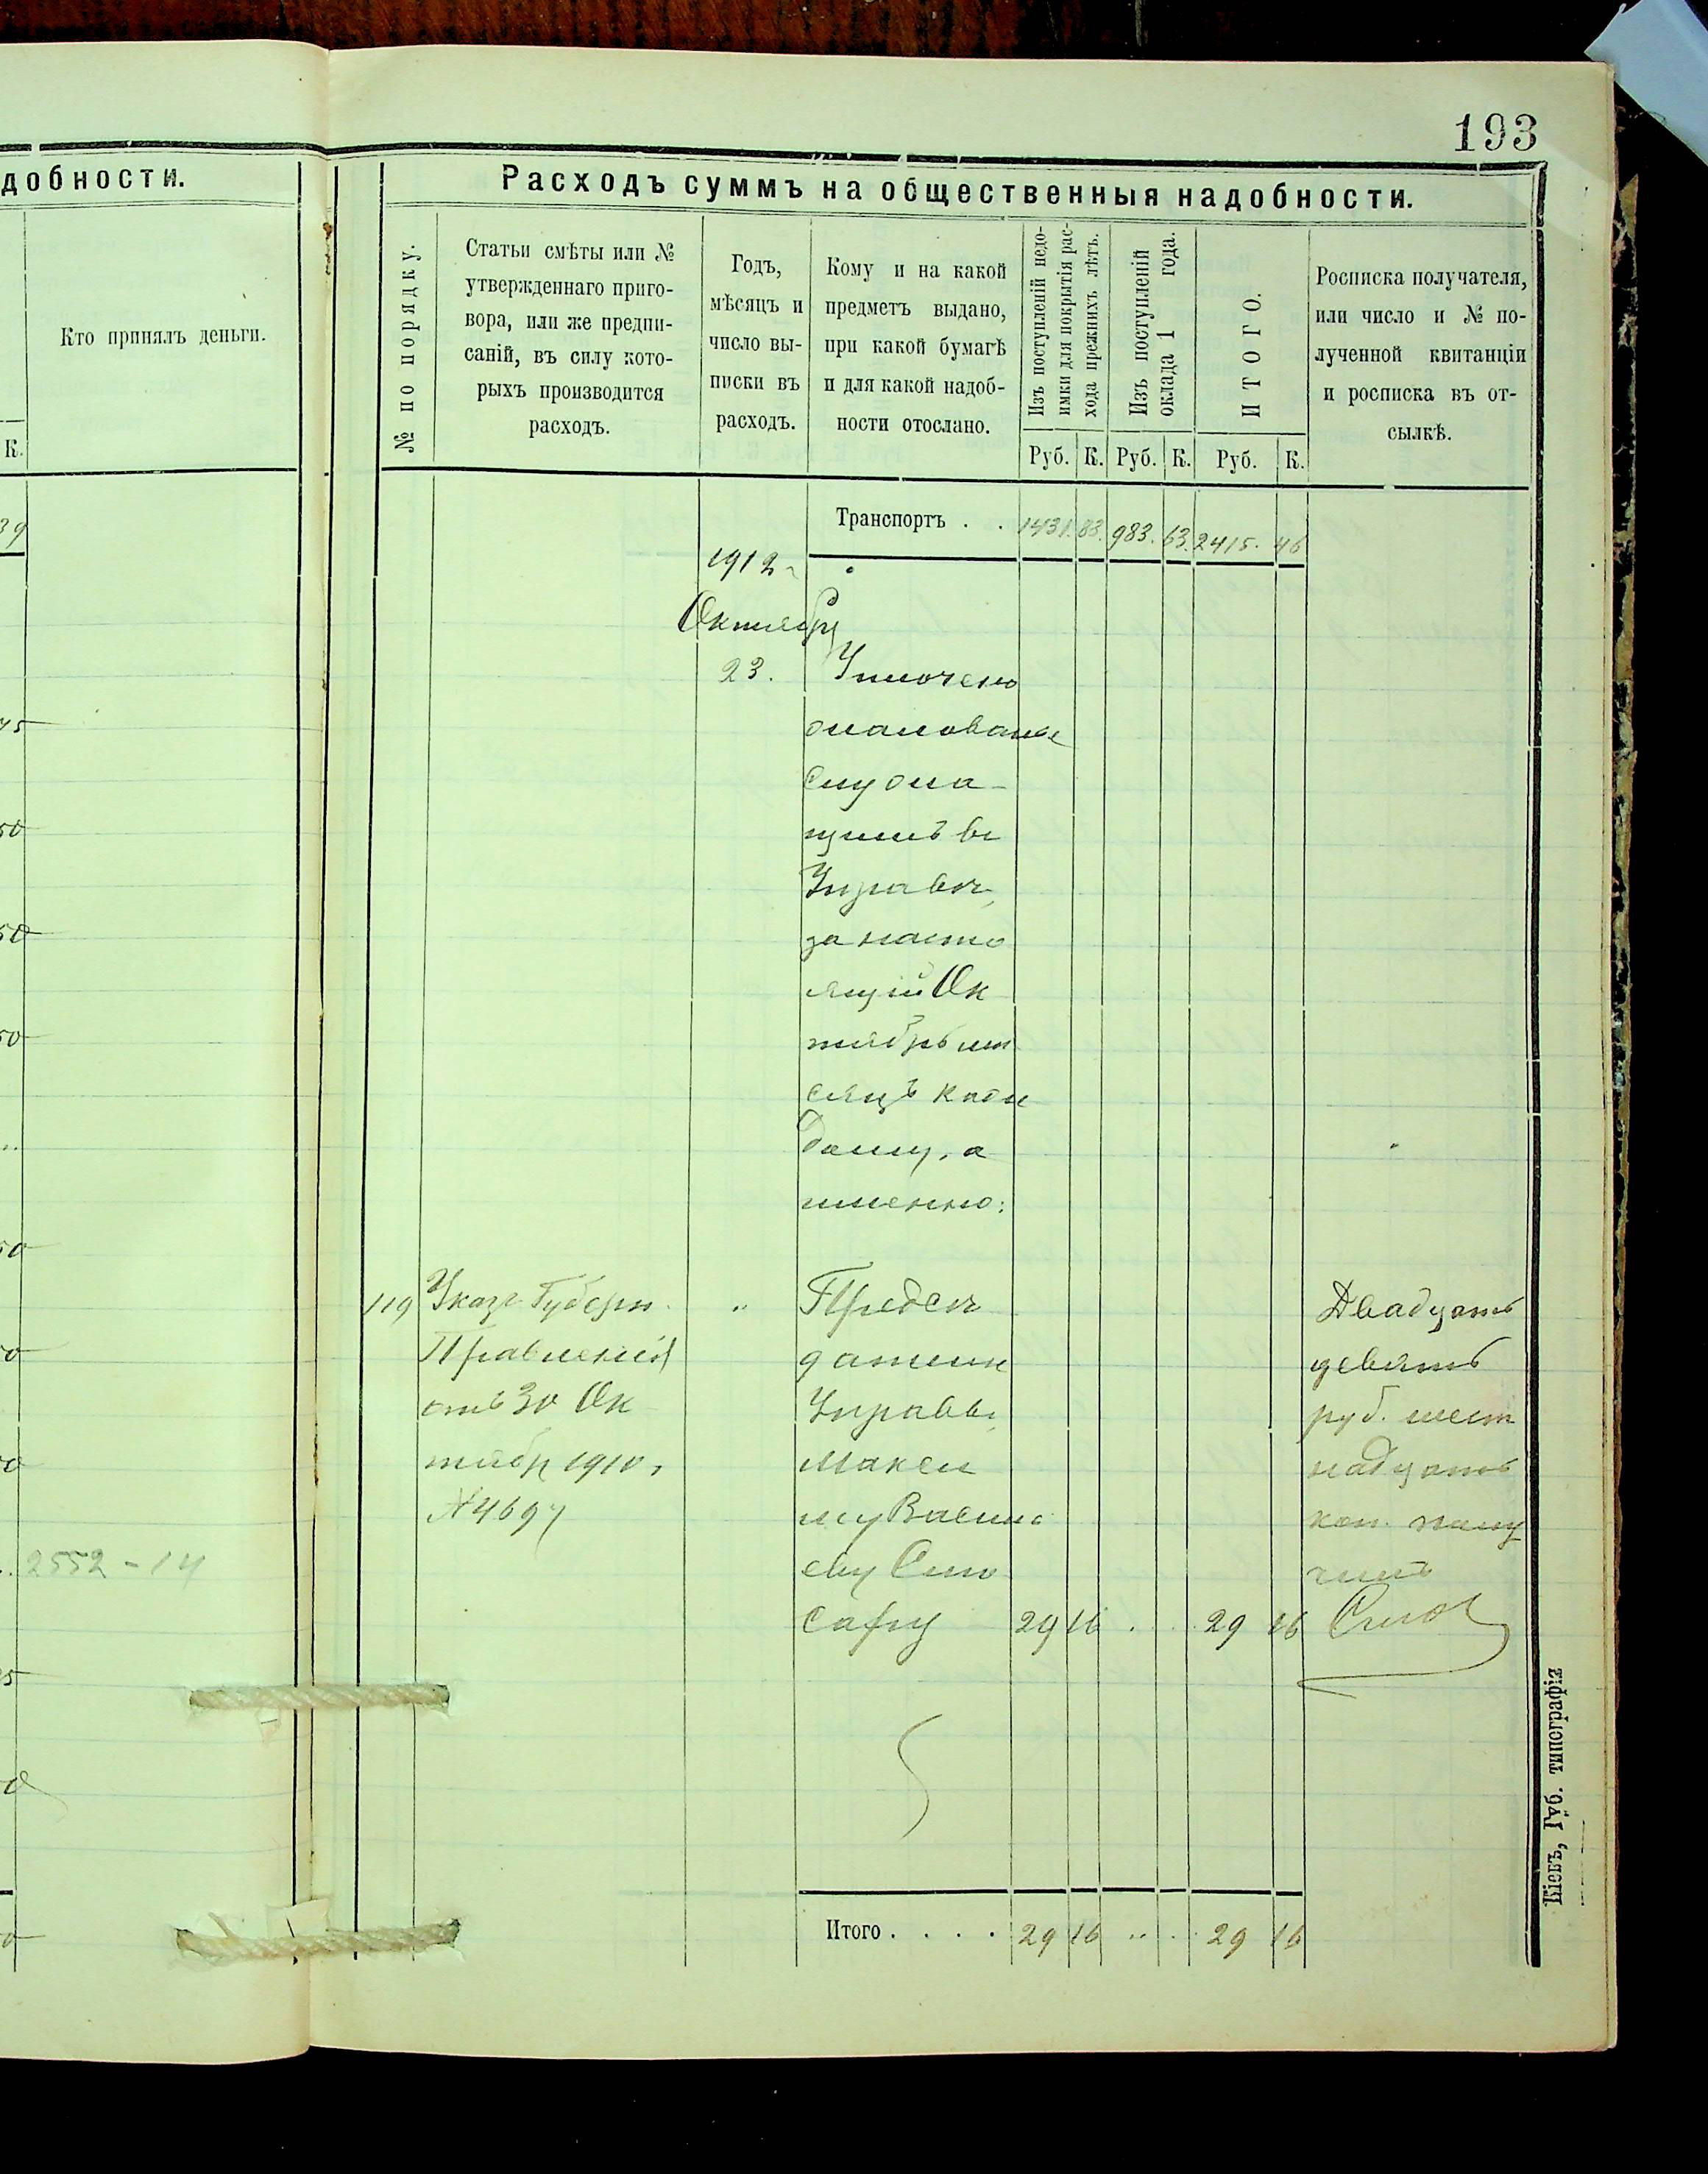 193
добности.
Кто принялъ деньги.
К.
39
45
50
50
50
50
2552 - 14
Расходъ суммъ на общественныя надобности.
№ по порядку.
Статьи смѣты или №
утвержденнаго приго-
вора, или же предпи-
саній, въ силу кото-
рыхъ производится
расходъ.
Годъ,
мѣсяцъ и
число вы-
писки въ
расходъ.
Кому и на какой
предметъ выдано,
при какой бумагѣ
и для какой надоб-
ности отослано.
Изъ поступленій недо-
имки для покрытія рас-
хода прежнихъ лѣтъ.
Изъ поступленій
оклада 1 года.
ИТОГО.
Росписка получателя,
или число и № по-
лученной квитанціи
и росписка въ от-
сылкѣ.
Руб. К. Руб. К. Руб. К.
Транспортъ . . 1431. 83. 983. 63. 2415. 46
1912
Октября
23.
Уплочено
жалованье
служа-
щимъ въ
Управѣ
за насто
ящій Ок
тябрь мѣ
сяцъ каж
дому, а
именно:
119 Указъ Губерн.
Правленія
отъ 30 Ок
тябр 1910 г
№ 4697
"
Предсѣ
дателю
Управы
Макси
му Василь
еву Слю
сарю 29 16 . . . 29 16
Двадцать
девять
руб. шест
надцать
коп. полу
чилъ
Слюс
Итого . . . . 29 16 " . . 29 16
Кіевъ, Губ. типографія